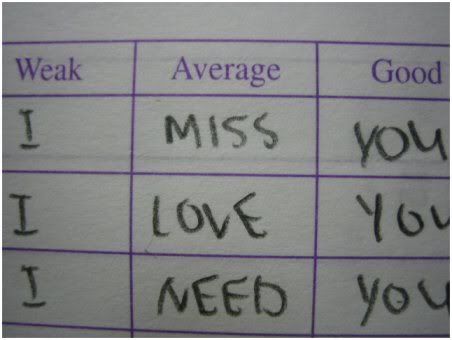 Weak Average Good
I MISS YOU
I LOVE YOU
I NEED YOU